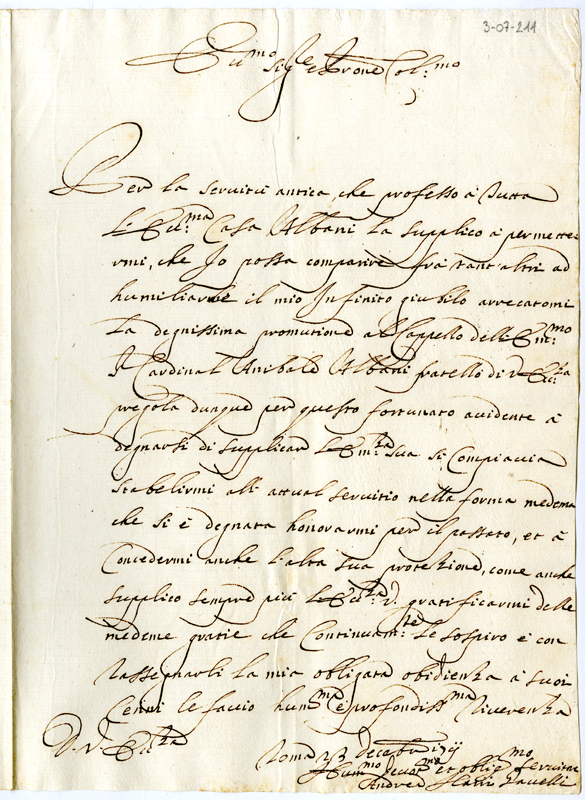 3-07-211
Ecc.mo Sig.re e Prone Col.mo
Per la servitù antica, che professo à tutta
l'Ecc.ma Casa Albani la supplico à permette
rmi, che Io possa comparire frà tant'altri ad
humiliarle il mio Infinito giubilo arrecatomi
la degnissima promutione al Cappello dell'Em.mo
Cardinal Anibale Albani fratello di V. Ecc.za
pregola dunque per questo fortunato accidente à
degnarsi di supplicar l'Em.za Sua si Compiaccia
stabelirmi all'attual servitio nella forma medema
che si è degnata honorarmi per il passato, et à
Concedermi anche l'alta sua protezione, come anche
supplico sempre più l'Ecc.za V. gratificarmi delle
medeme gratie che Continuam.te le sospiro e con
rassegnarli la mia obligata obidienza à suoi
Cenni le faccio hum.ma e profondiss.ma Riverenza
D. V. Ecc.za
Roma 23 Decebre 1711
Hum.mo Devot.mo et oblig.mo Servitore
Andrea